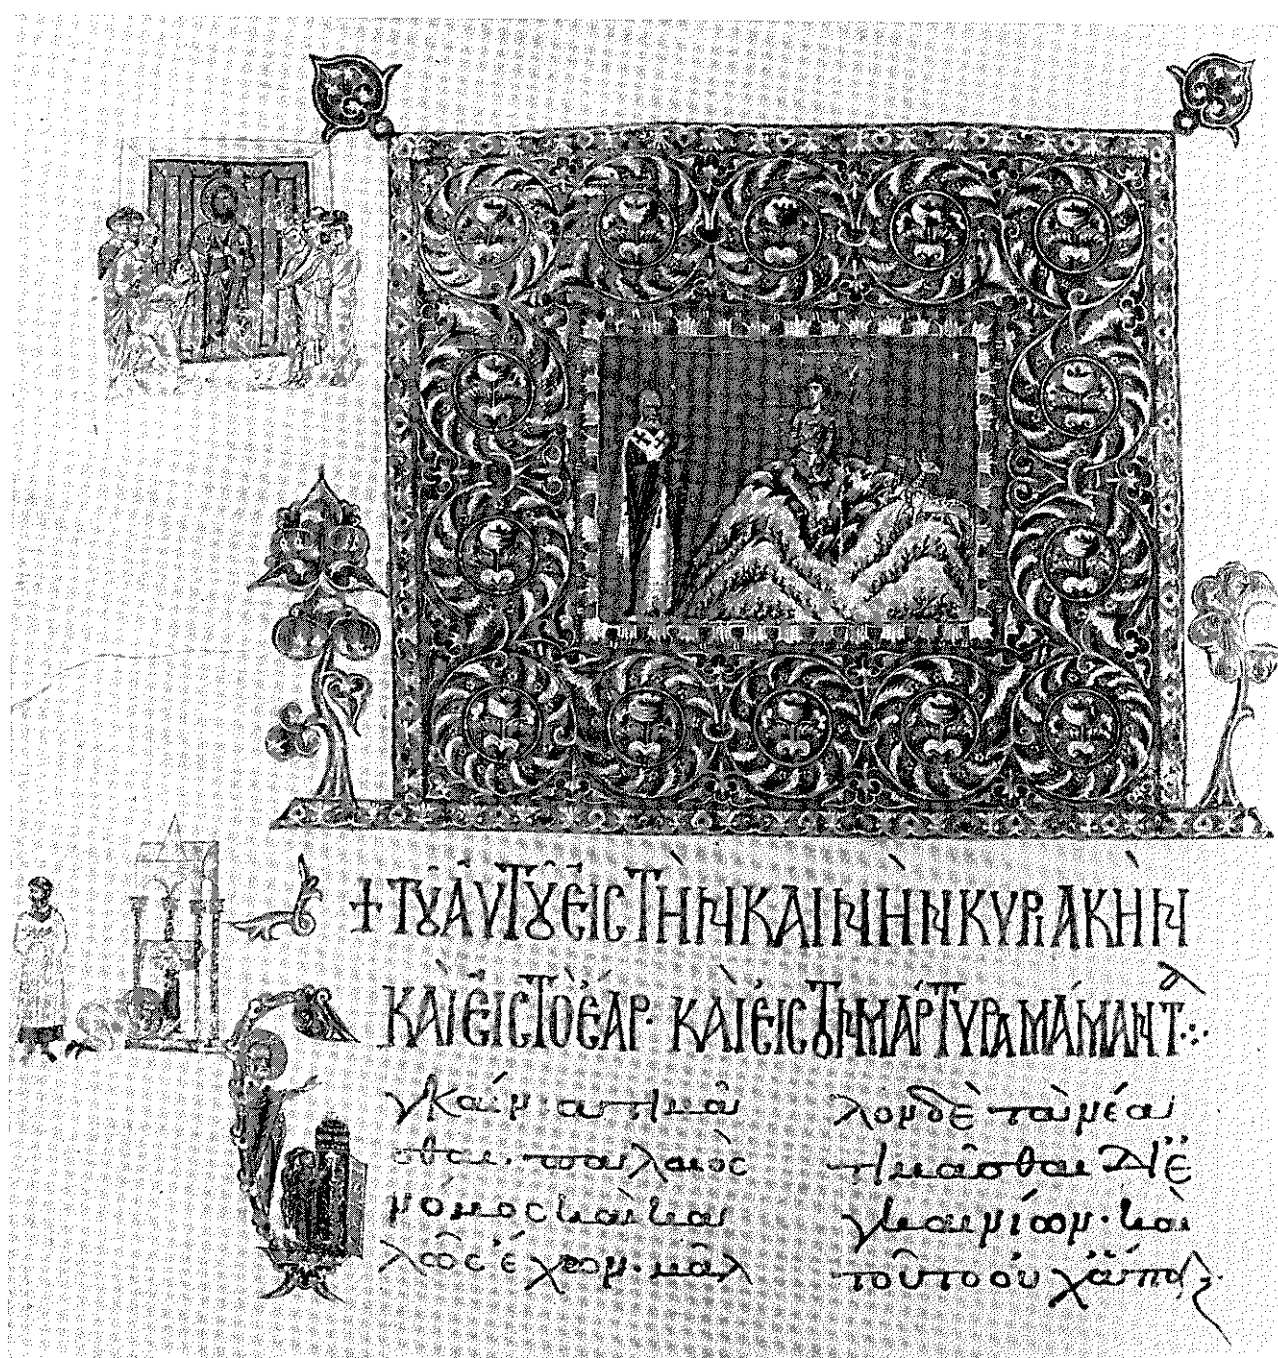 + ΤȢ ΑΥΤȢ ΕΙC ΤῊΝ ΚΑΙΝῊΝ ΚΥΡΙΑΚῊΝ
ΚΑῚ ΕἸC ΤῸ ἜΑΡ· ΚΑῚ ΕἸC ΤΟΝ ΜΆΡΤΥΡΑ ΜΆΜΑΝΤᾺ
Ἐγκαίνια τιμᾶ
σθαι· παλαιὸς
νόμος καὶ κα
λῶς ἔχων· μᾶλ
λον δὲ τὰ νέα
τιμᾶσθαι δι' ἐ
γκαινίων· καὶ
τοῦτο οὐχ ἅπαξ